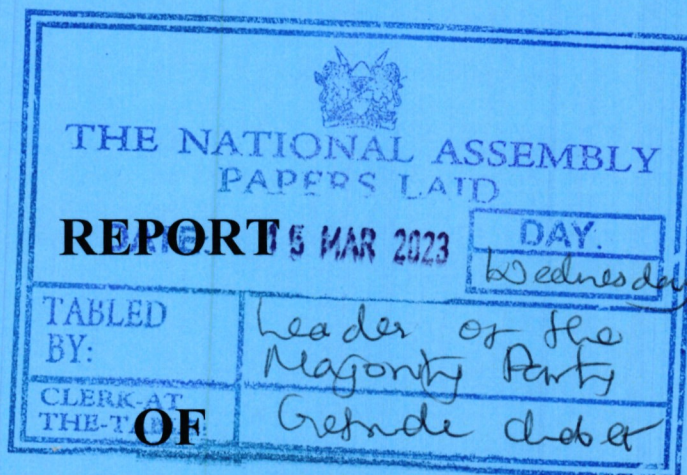 THE NATIONAL ASSEMBLY
PAPERS LAID
REPORT
DATE: 15 MAR 2023
DAY.
Wednesday
TABLED
BY:
Leader of the
Majority Party
CLERK-AT
THE-TABLE
OF